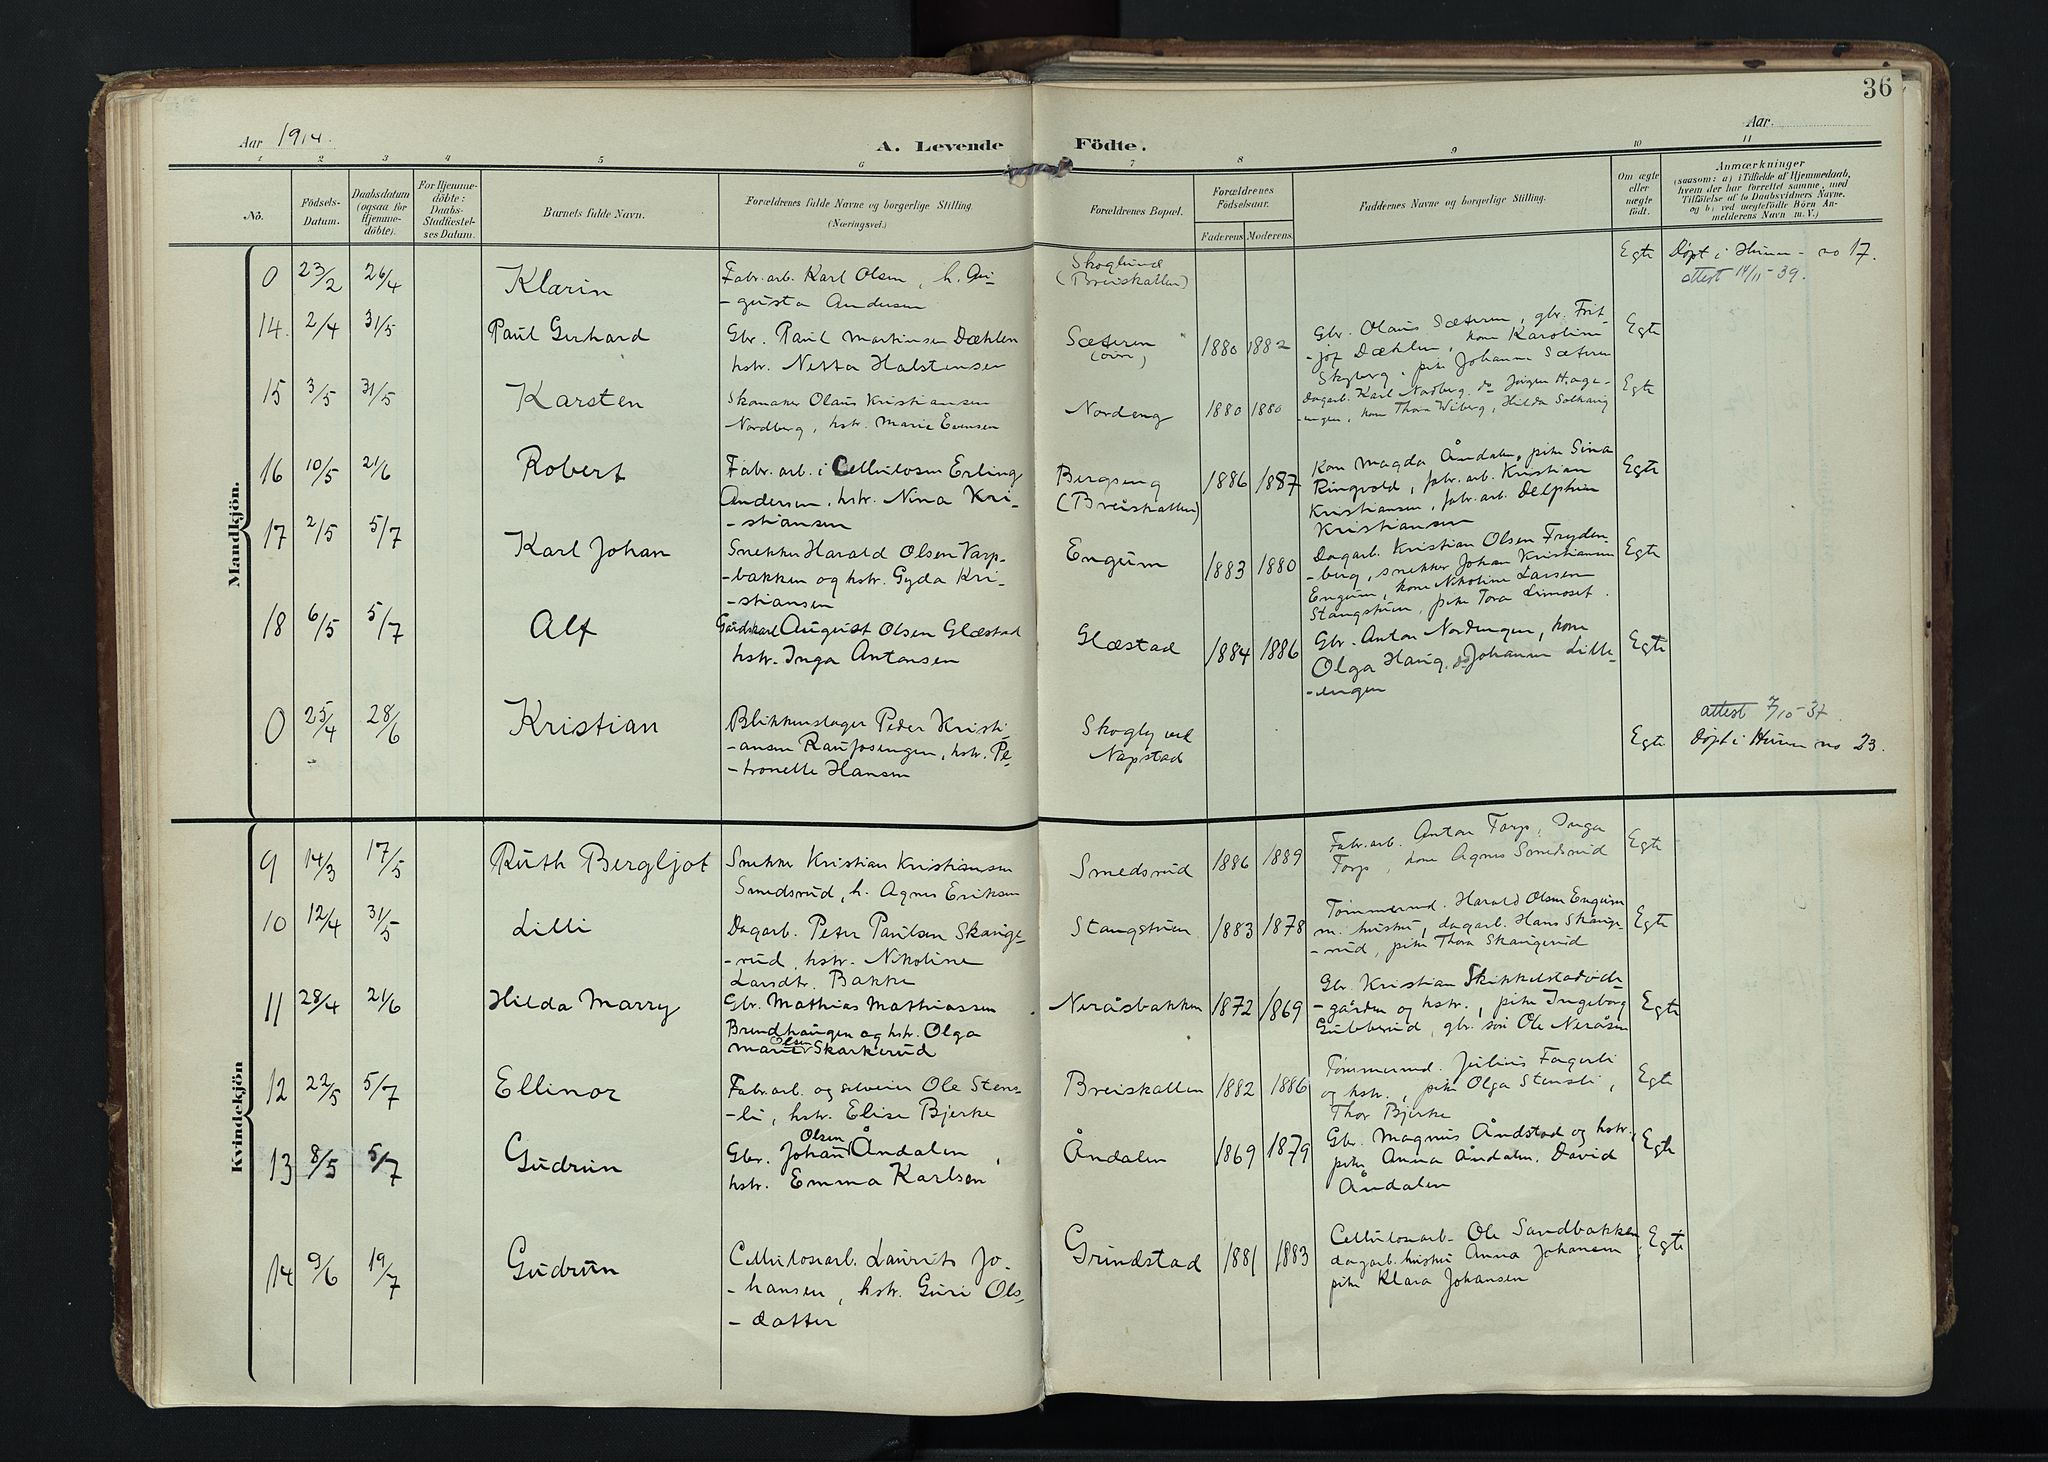 36
Aar 1914.
A. Levende
Födte.
Aar.
1 2 3 4 5 6 7 8 9 10 11
No.
Födsels-
Datum.
Daabsdatum
(ogsaa for
Hjemme-
döbte).
For Hjemme-
döbte:
Daabs-
Stadfæstel-
ses Datum.
Barnets fulde Navn.
Forældrenes fulde Navne og borgerlige Stilling.
(Næringsvei.)
Forældrenes Bopæl.
Forældrenes
Födselsaar.
Faderens Moderens.
Faddernes Navne og borgerlige Stilling.
Om ægte
eller
uægte
født.
Anmærkninger
(saasom: a) i Tilfælde af Hjemmedaab,
hvem der har forrettet samme, med
Tilföielse af to Daabsvidners Navne.
og b) ved uægtefödte Börn An-
melderens Navn m. V.)
Mandkjön.
0 23/2 26/4 Klarin
Fabr. arb. Karl Olsen, h. Au-
-gusta Andersen
Skoglund
(Breiskallen)
Egte
Døpt i Hunn - no 17.
attest 14/11-39.
14. 2/4 31/5 Paul Gerhard
Gbr. Paul Martinsen Dæhlen
hstr. Netta Halstensen
Sæteren
1880 1882
Gbr. Olaus Sæteren, gbr. Frit-
-jof Dæhlen, kone Karoline
Skyberg, pike Johanne Sæteren
Egte
15 3/5 31/5 Karsten
Skomaker Olaus Kristiansen
Nordberg, hstr. Marie Evensen
Nordeng
1880 1880
Dagarb. Karl Nordberg, do Jørgen Hage-
-ungen, kone Thora Wiberg, Hilda Solhaug
Egte
16 10/5 21/6 Robert
Fabr. arb. i Cellulosen Erling
Andersen, hstr. Nina Kri-
-stiansen
Bergseng
(Breiskallen)
1886 1887
Kone Magda Åndalen, pike Sina
Ringvold, fabr. arb. Kristian
Kristiansen, fabr. arb. Delphin
Kristiansen
Egte
17 2/5 5/7 Karl Johan
Snekker Harald Olsen Varp-
-bakken og hstr. Gyda Kri-
-stiansen
Engum
1883 1880
Dagarb. Kristian Olsen Fryden-
-berg, snekker Johan Kristiansen
Engum, kone Nikoline Larsen
Stangstuen, pike Tora Limoset.
Egte
18 6/5 5/7 Alf
Gårdskarl August Olsen Glæstad
hstr. Inga Antonsen
Glæstad
1884 1886
Gbr. Anton Nordengen, kone
Olga Haug, do Johanne Lille-
-engen
Egte
0 25/4 28/6 Kristian
Blikkenslager Peder Kristi-
-ansen Raufossengen, hstr. Pe-
-tronelle Hansen
Skogly ved
Napstad
Egte
attest 7/10-37.
Døpt i Hunn no 23.
Kvindekjön
9 14/3 17/5 Ruth Bergljot
Snekker Kristian Kristiansen
Smedsrud, h. Agnes Eriksen
Smedsrud
1886 1889
Fabr. arb. Anton Torp, Inga
Torp, kone Agnes Smedsrud
Egte
10 12/4 31/5 Lilli
Dagarb. Peter Paulsen Skauge-
-rud, hstr. Nikoline
Larsdtr. Bakke
Stangstuen
1883 1878
Tømmermd. Harald Olsen Engum
m. hustru, dagarb. Hans Skauge-
-rud, pike Thora Skaugerud
Egte
11 28/4 21/6 Hilda Marry
Gbr. Mathias Mathiassen
Brendhaugen og hstr. Olga
Marie Olsen Skarkerud
Neråsbakken
1872 1869
Gbr. Kristian Skikkelstadøde-
-gården og hstr., pike Ingeborg
Gubberud, gbr. søn Ole Neråsen
Egte
12 22/5 5/7 Ellinor
Fabr. arb. og selveier Ole Stens-
-li, hstr. Elise Bjerke
Breiskallen
1882 1886
Tømmermd. Julius Fagerli
og hstr., pike Olga Stensli,
Thor Bjerke
Egte
13 8/5 5/7 Gudrun
Gbr. Johan Olsen Åndalen,
hstr. Emma Karlsen
Åndalen
1869 1879
Gbr. Magnus Åndstad og hstr.,
pike Anna Åndalen, David
Åndalen
Egte
14 9/6 19/7 Gudrun
Cellulosearb. Laurits Jo-
-hansen, hstr. Guri Ols-
-datter
Grindstad
1881 1883
Cellulosearb. Ole Sandbakken
dagarb. hustru Anna Johansen
pike Klara Johansen
Egte